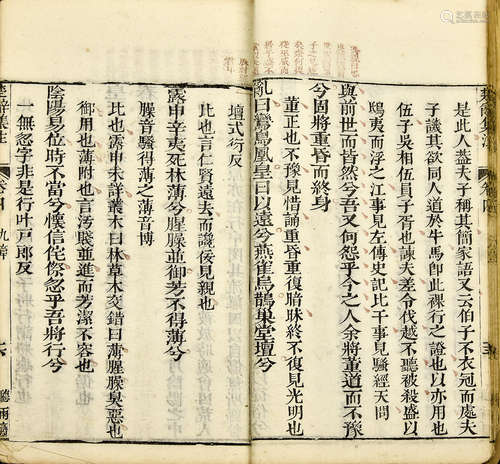 是此人盡夫子稱其簡家語又云伯子不衣冠而處夫
子譏其欲同人道於牛馬即此裸行之證也以亦用也
伍子吳相伍員子胥也諫夫差令伐越不聽被殺盛以
鴟夷而浮之江事見左傳史記比干事見騷經天問
與前世而皆然兮吾又何怨乎今之人余將董道而不豫
兮固將重昏而終身
董正也不豫見惜誦重昏重復暗昧終不復見光明也
亂曰鸞鳥鳳皇日以遠兮燕雀烏鵲巢堂壇兮
楚辭集注
卷四
九辯
六
聽雨齋
壇式衍反
比也言仁賢遠而讒佞見親也
露申辛夷死林薄兮腥臊並御芳不得薄兮
臊音騷得薄之薄音博
比也露申未詳叢木曰林草木交錯曰薄腥臊臭惡也
御用也薄附也言汚賤並進而芳潔不容也
陰陽易位時不當兮懷信侘傺忽乎吾將行兮
一無忽字非是行叶戸郎反